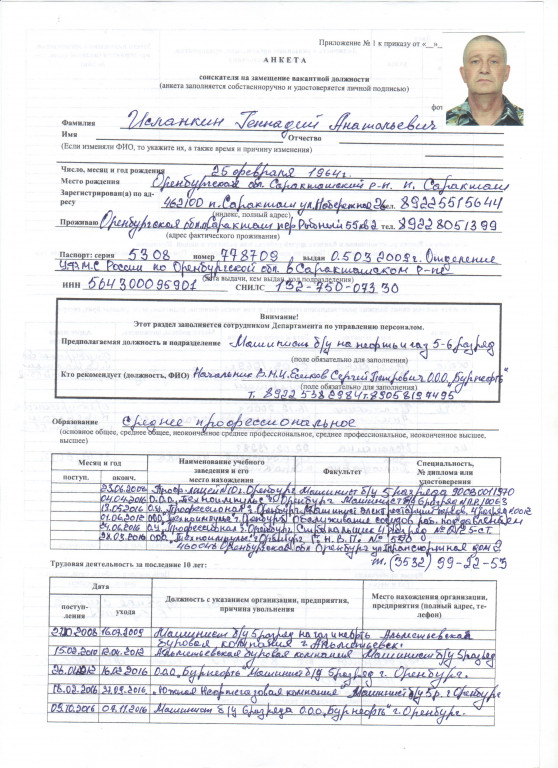 Приложение № 1 к приказу от «__»_
АНКЕТА
соискателя на замещение вакантной должности
(анкета заполняется собственноручно и удостоверяется личной подписью)
фот
Фамилия Исланкин Геннадий Анатольевич
Имя Отчество
(Если изменяли ФИО, то укажите их, а также время и причину изменения)
Число, месяц и год рождения 25 февраля 1964г.
Место рождения Оренбургская обл. Саракташский р-н. п. Саракташ
Зарегистрирован(а) по ад-
ресу 462100 п. Саракташ ул. Набережная тел. 89225515644
(индекс, полный адрес),
Проживаю Оренбургская обл Саракташ пер Рабочий 55кв2 тел. 89228051399
(адрес фактического проживания)
Паспорт: серия 5308 номер 778709 выдан 0.503 2009г. Отделение
УФМС России по Оренбургской обл. в Саракташском р-не
(дата выдачи, кем выдан, код подразделения)
ИНН 564300095901 СНИЛС 132-750-073 30
Внимание!
Этот раздел заполняется сотрудником Департамента по управлению персоналом.
Предполагаемая должность и подразделение Машинист б/у на нефть и газ 5-6 разряд
(поле обязательно для заполнения)
Кто рекомендует (должность, ФИО) Начальник Сергей Петрович О.О.О. „Бурнефть"
(поле обязательно для заполнения)
т. 89225382984 т. 89058197495
Образование среднее профессиональное
(основное общее, среднее общее, неоконченное среднее профессиональное, среднее профессиональное, неоконченное высшее,
высшее)
Месяц и год
поступ. оконч.
Наименование учебного
заведения и его
место нахождения
Факультет
Специальность,
№ диплома или
удостоверения
23.06.2006 Проф-лицей №10 г. Оренбург Машинист б/у 5 разряда
О.О.О. „Техноимпульс" г. Оренбург Машинист б/у 6 разряд
О.У. „Профессионал" г. Оренбург
01.06.2012 ООО „Техноимпульс" г. Оренбург Обслуживание сосудов раб. под давлением
О.У. „Профессионал" г. Оренбург Стропальщик 4 разряд
28.03.2016 ООО „Техноимпульс" г. Оренбург Г.Н.В.П. № 550
460048 Оренбургская обл Оренбург ул Транспортная дом
т. (3532) 99-22-53
Трудовая деятельность за последние 10 лет:
Дата
поступ-
ления
ухода
Должность с указанием организации, предприятия,
причина увольнения
Место нахождения организации,
предприятия (полный адрес, те-
лефон)
16.07.2009 Машинист б/у 5 разряд на газ и нефть Альметьевская
буровая компания г. Альметьевск.
Альметьевская буровая компания Машинист б/у 5 разряд
16.02.2016 О.О.О. „Бурнефть" Машинист б/у 5 разряд г. Оренбург.
18.02.2016 „Южная Нефтегазовая компания" Машинист б/у 5 р. г. Оренбург
09.11.2016 Машинист б/у 6 разряд О.О.О. „Бурнефть" г. Оренбург.